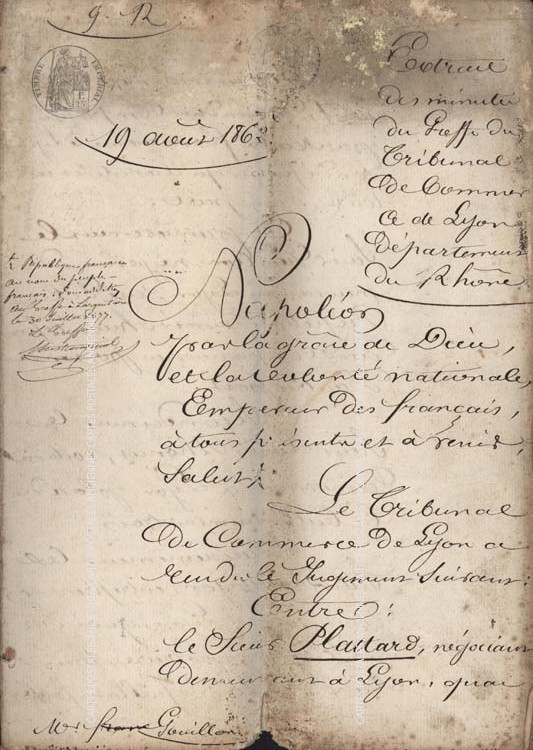 9. 12
TIMBRE IMPERIAL
Extrait
des minutes
du Greffe du
Tribunal
de Commer
ce de Lyon
Département
du Rhône
19 août 186
République française
au nom du peuple
français
le 30 Juillet 1877.
Le Greffier
Napoléon
par la grâce de Dieu,
et la volonté nationale,
Empereur des français,
à tous présents et à venir,
Salut;
Le Tribunal
de Commerce de Lyon a
rendu le Jugement suivant:
Entre:
le Sieur Plattard, négociant
demeurant à Lyon, quai
Me Gouillon